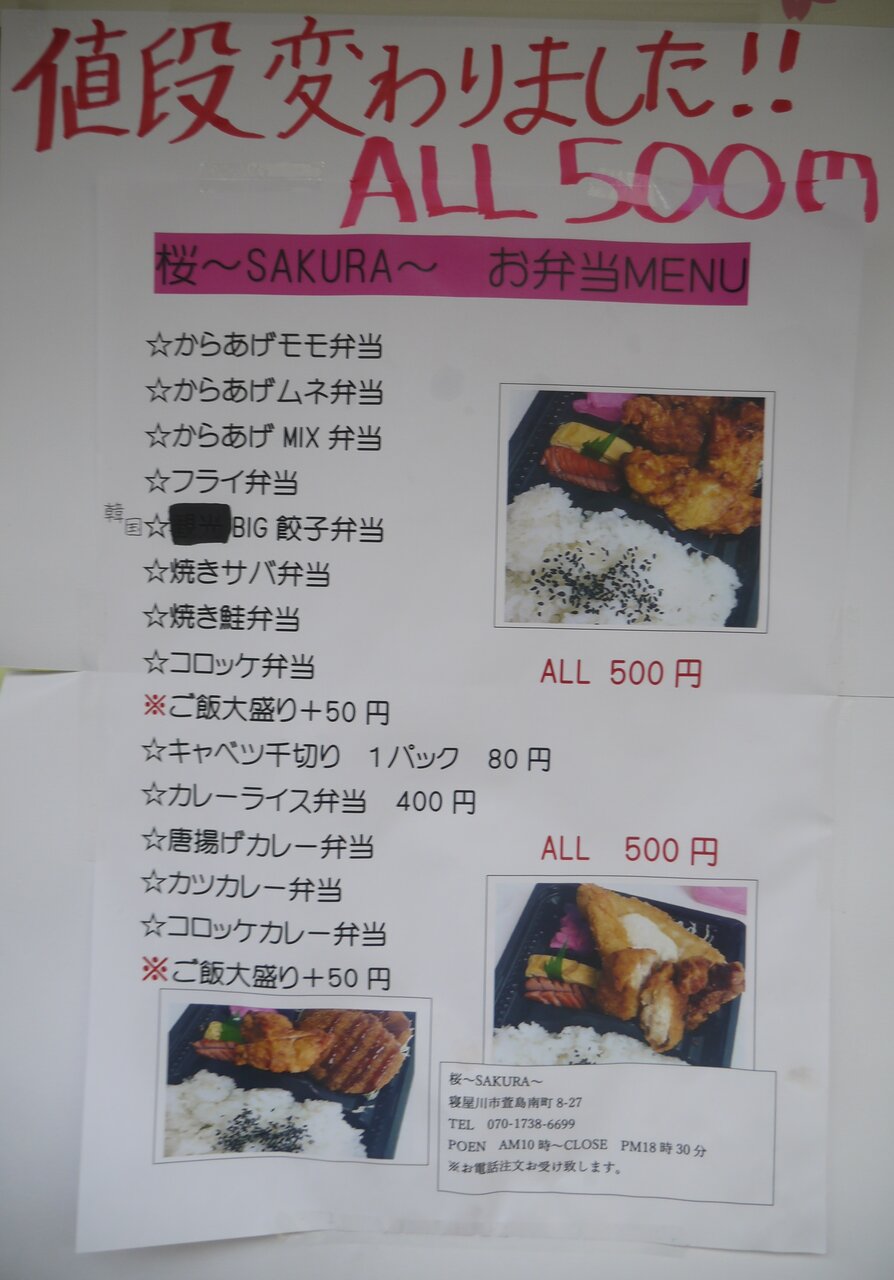 値段変わりました!!
ALL 500円
桜～SAKURA～　お弁当MENU
☆からあげモモ弁当
☆からあげムネ弁当
☆からあげ MIX 弁当
☆フライ弁当
韓国
☆観光BIG 餃子弁当
☆焼きサバ弁当
☆焼き鮭弁当
☆コロッケ弁当
ALL 500 円
※ご飯大盛り＋50 円
☆キャベツ千切り　1パック　80 円
☆カレーライス弁当　400 円
☆唐揚げカレー弁当
ALL　500 円
☆カツカレー弁当
☆コロッケカレー弁当
※ご飯大盛り＋50 円
桜～SAKURA～
寝屋川市萱島南町 8-27
TEL　070-1738-6699
POEN　AM10 時～CLOSE　PM18 時 30 分
※お電話注文お受け致します。